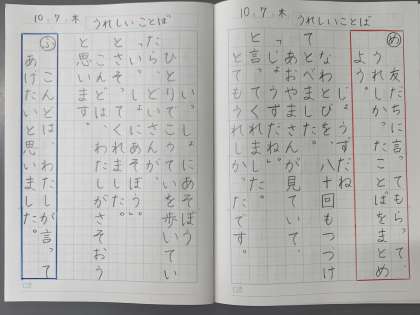 10.7.木
うれしいことば
め
友だちに言ってもらって、
うれしかったことばをまとめ
よう。
じょうずだね
なわとびを、八十回もつづけ
てとべました。
あおやまさんが見ていて、
「じょうずだね。」
と言ってくれました。
とてもうれしかったです。
10.7.木
うれしいことば
いっしょにあそぼう
ひとりでこうていを歩いてい
たら、といさんが、
「いっしょにあそぼう。」
とさそってくれました。
こんどは、わたしがさそおう
と思います。
ふ
こんどは、わたしが言って
あげたいと思いました。